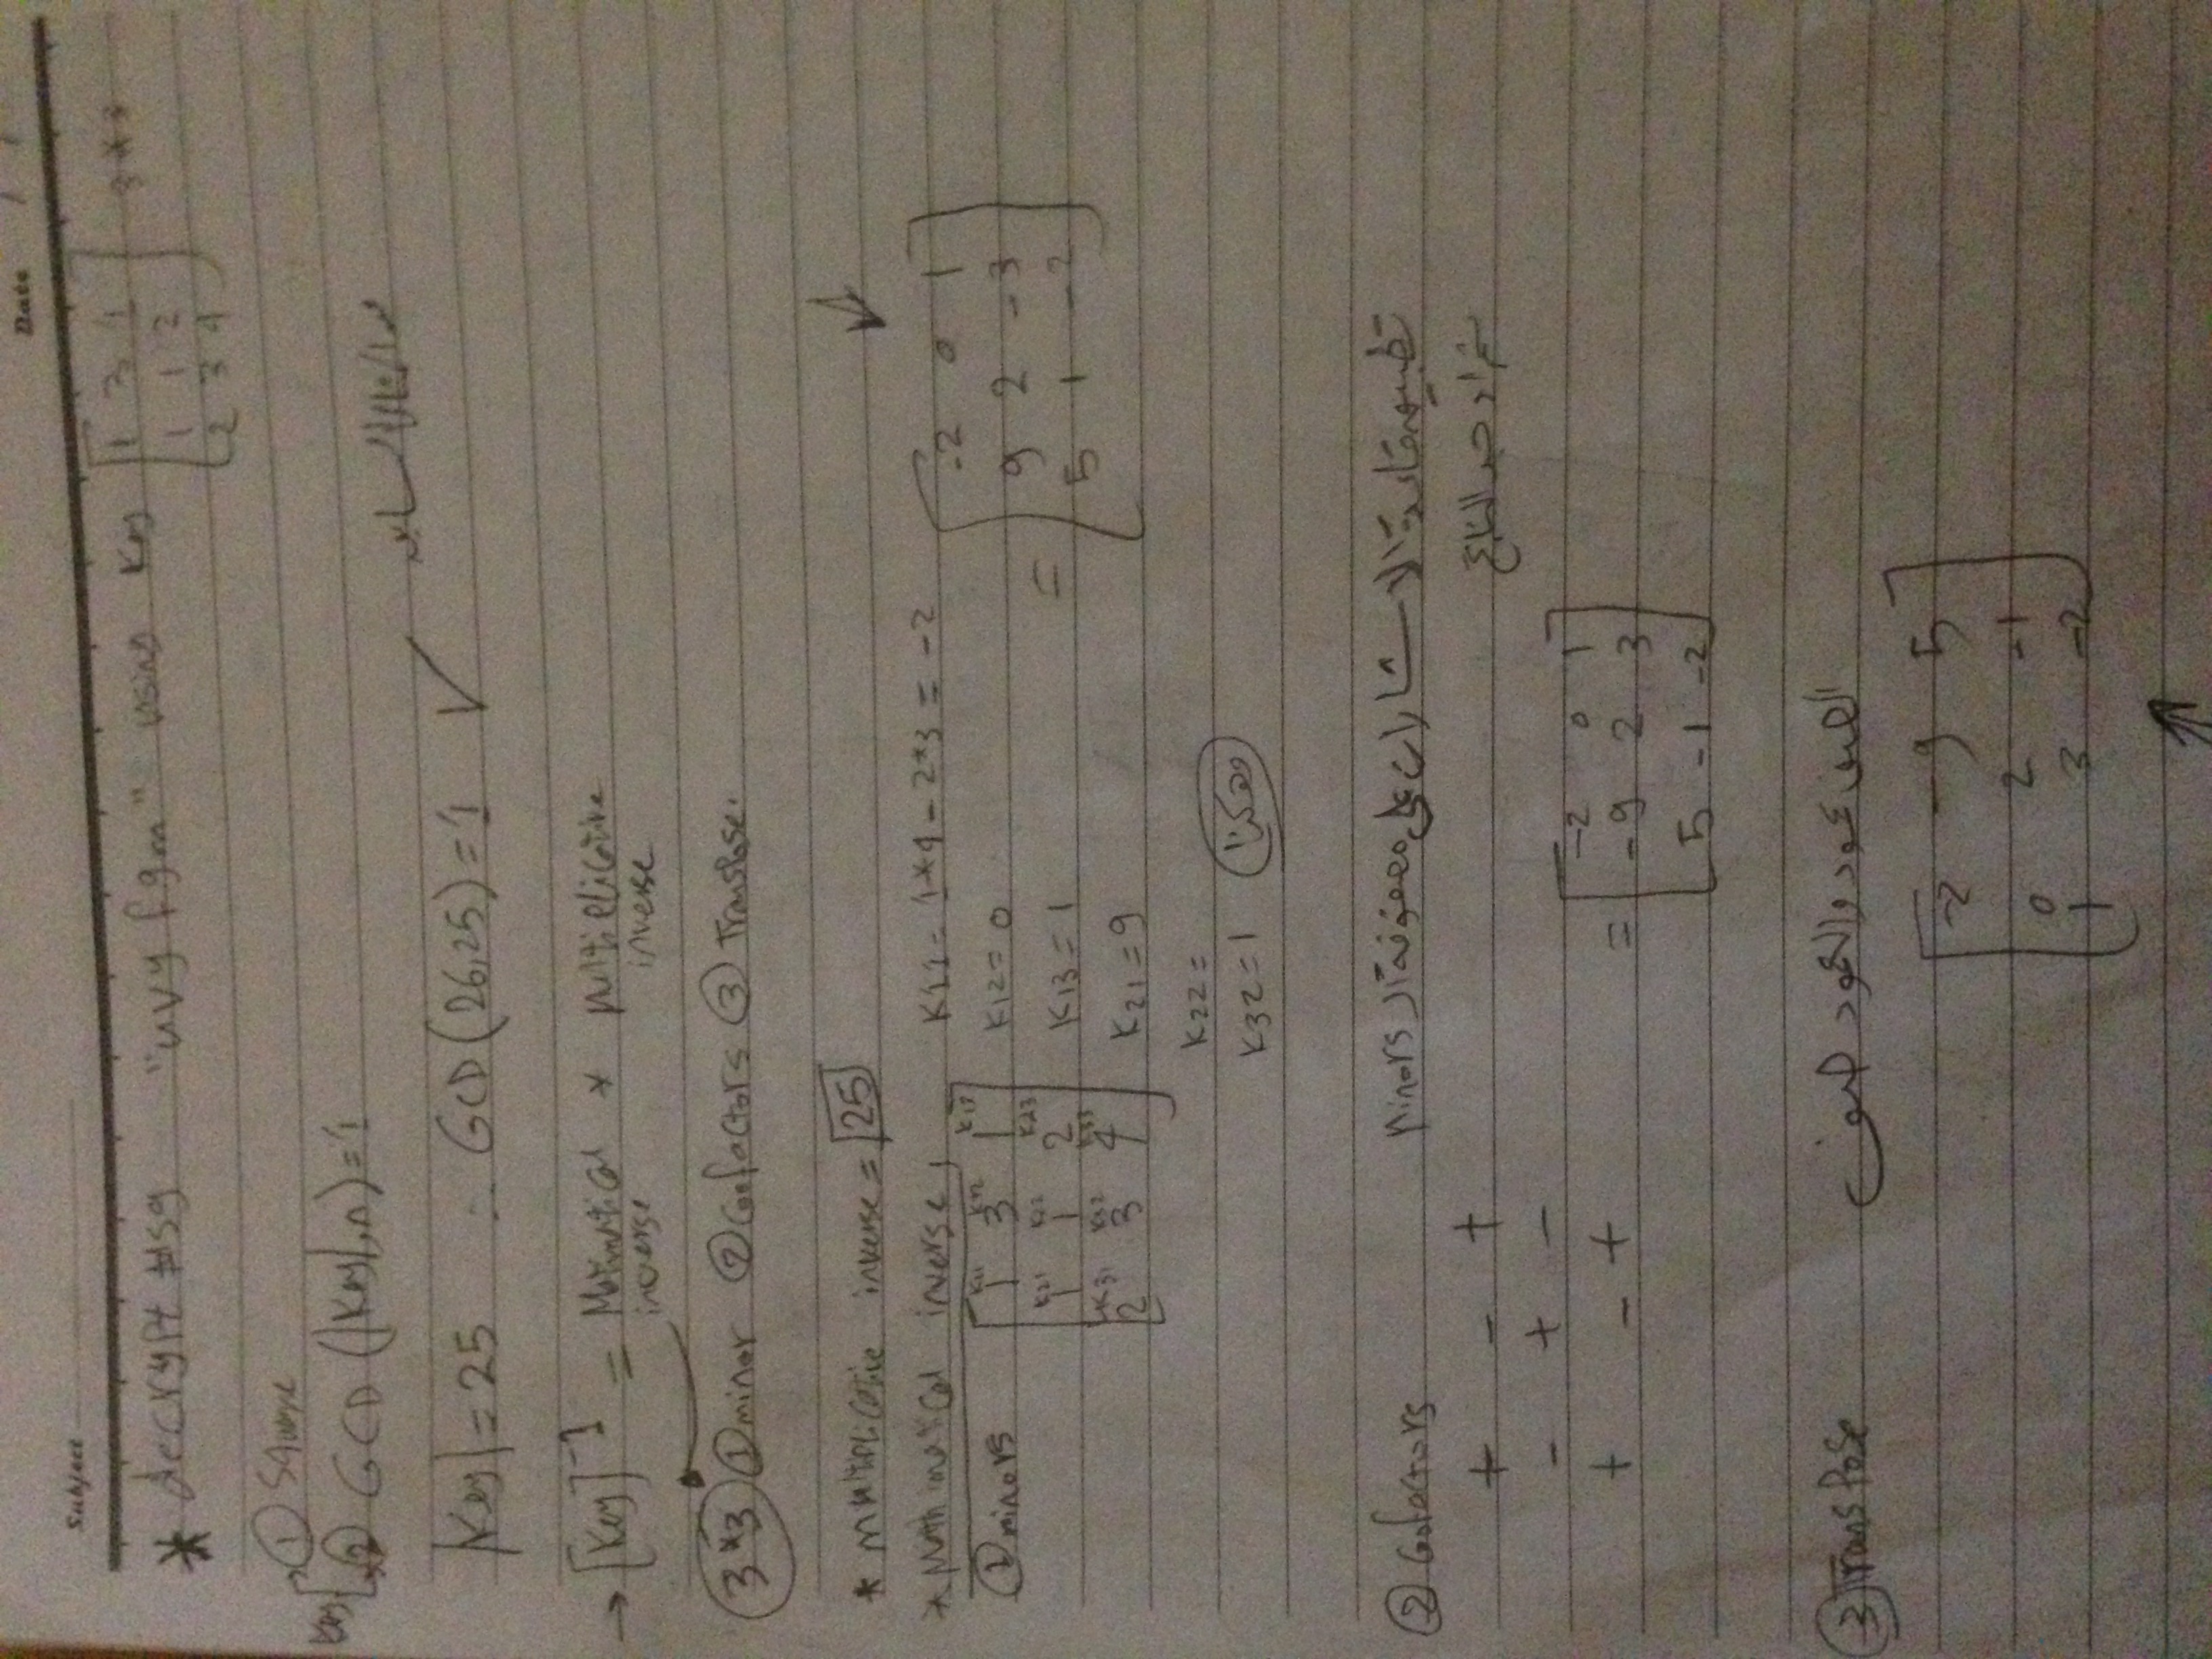 Date / /
Subject
* decrypt msg "uvy fgm" using Key [1 3 1 3*3
1 1 2
2 3 4]
Key ① Square
② GCD (|Key|,n)=1
من المثال السابق
|Key| = 25 ∴ GCD(26,25)=1 ✓
→ [Key]⁻¹ = Matmatical * multiplicative
inverse inverse
3*3 ① minor ② Cofactors ③ Transpose.
* multiplicative inverse = 25
* Mathimatical inverse, K11 = 1*4 - 2*3 = -2
① minors
K11 K12 K13
1 3 1
K21 K22 K23
1 1 2
K31 K32 K33
2 3 4
K12 = 0
K13 = 1
K21 = 9
K22 =
K32 = 1 وهكذا
= [-2 0 1
9 2 -3
5 1 -2]
② Cofactors تطبيق قاعدة الاشارات على مصفوفة الـ Minors
ثم اوجد الناتج
+ - +
- + -
+ - +
= [-2 0 1
-9 2 3
5 -1 -2]
③ Transpose الصف عمود والعمود صف
[-2 -9 5
0 2 -1
1 3 -2]